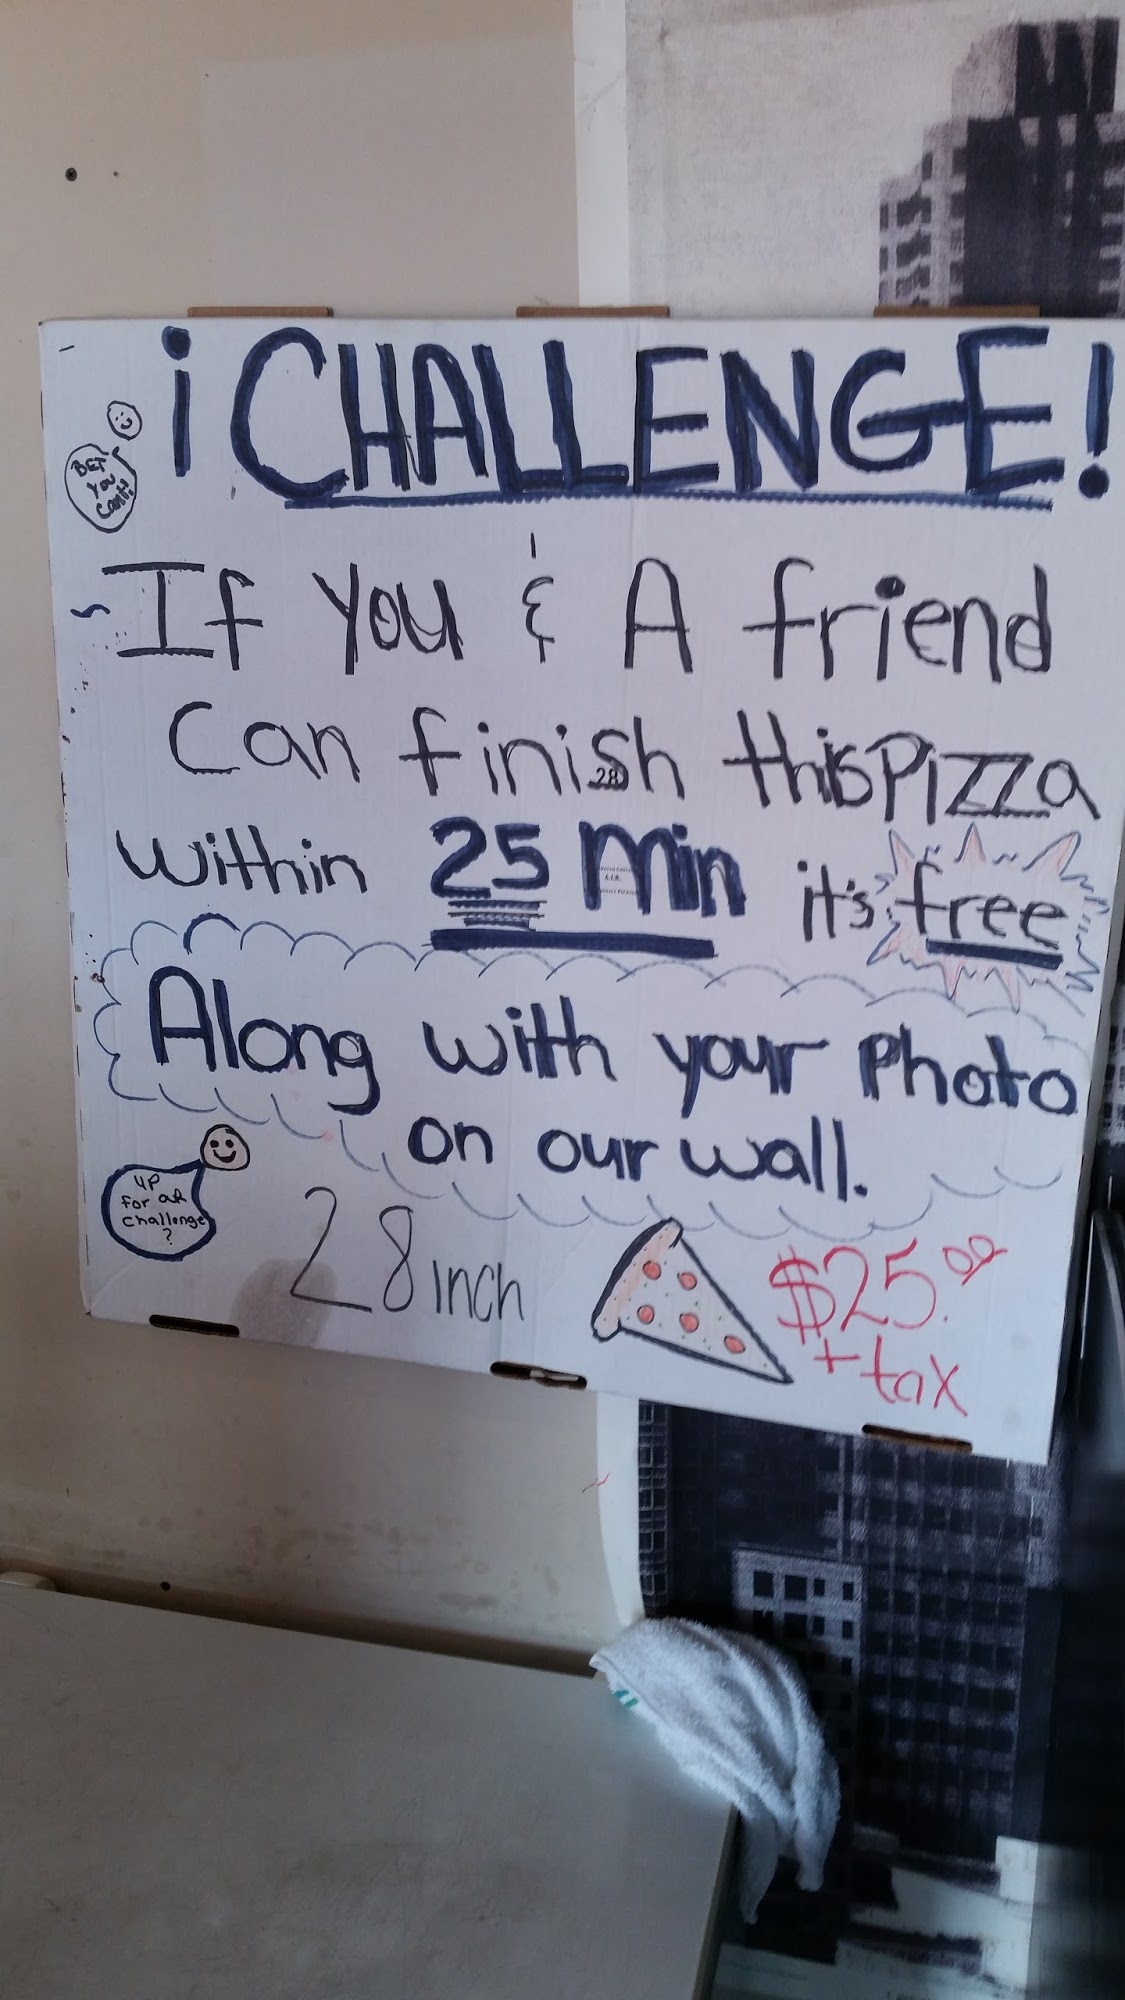 ¡CHALLENGE!
BET
YOU
CAN'T!
If you & A friend
Can finish this Pizza
28
within 25 Min it's free
Along with your Photo
on our wall.
UP
for a
challenge
?
28 inch
$25.00
+ tax